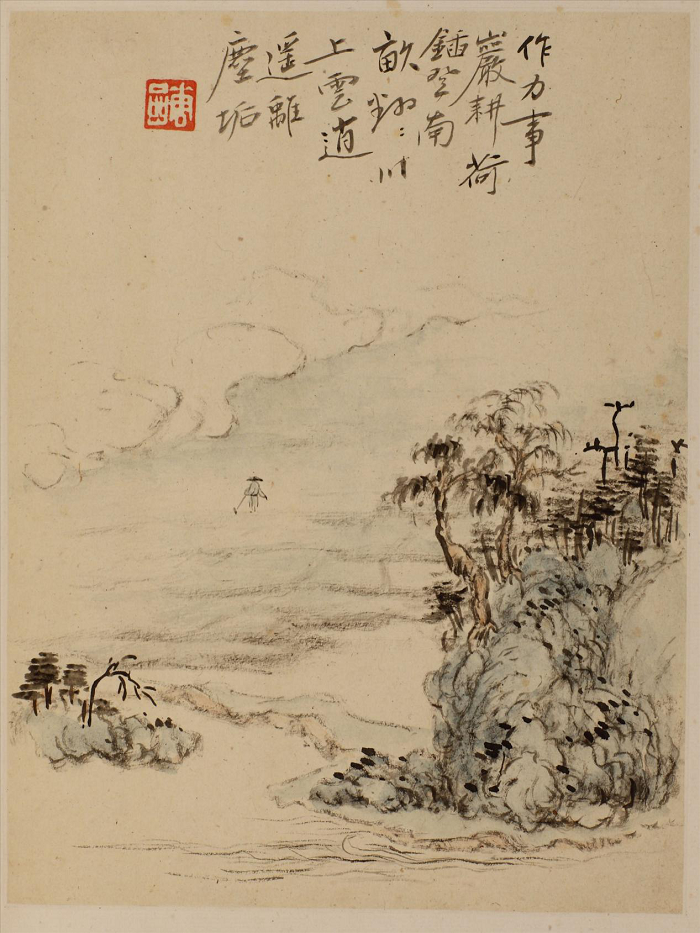 作力事
巖耕荷
鍤登南
畝〻川
上雲逍
遥離
塵垢